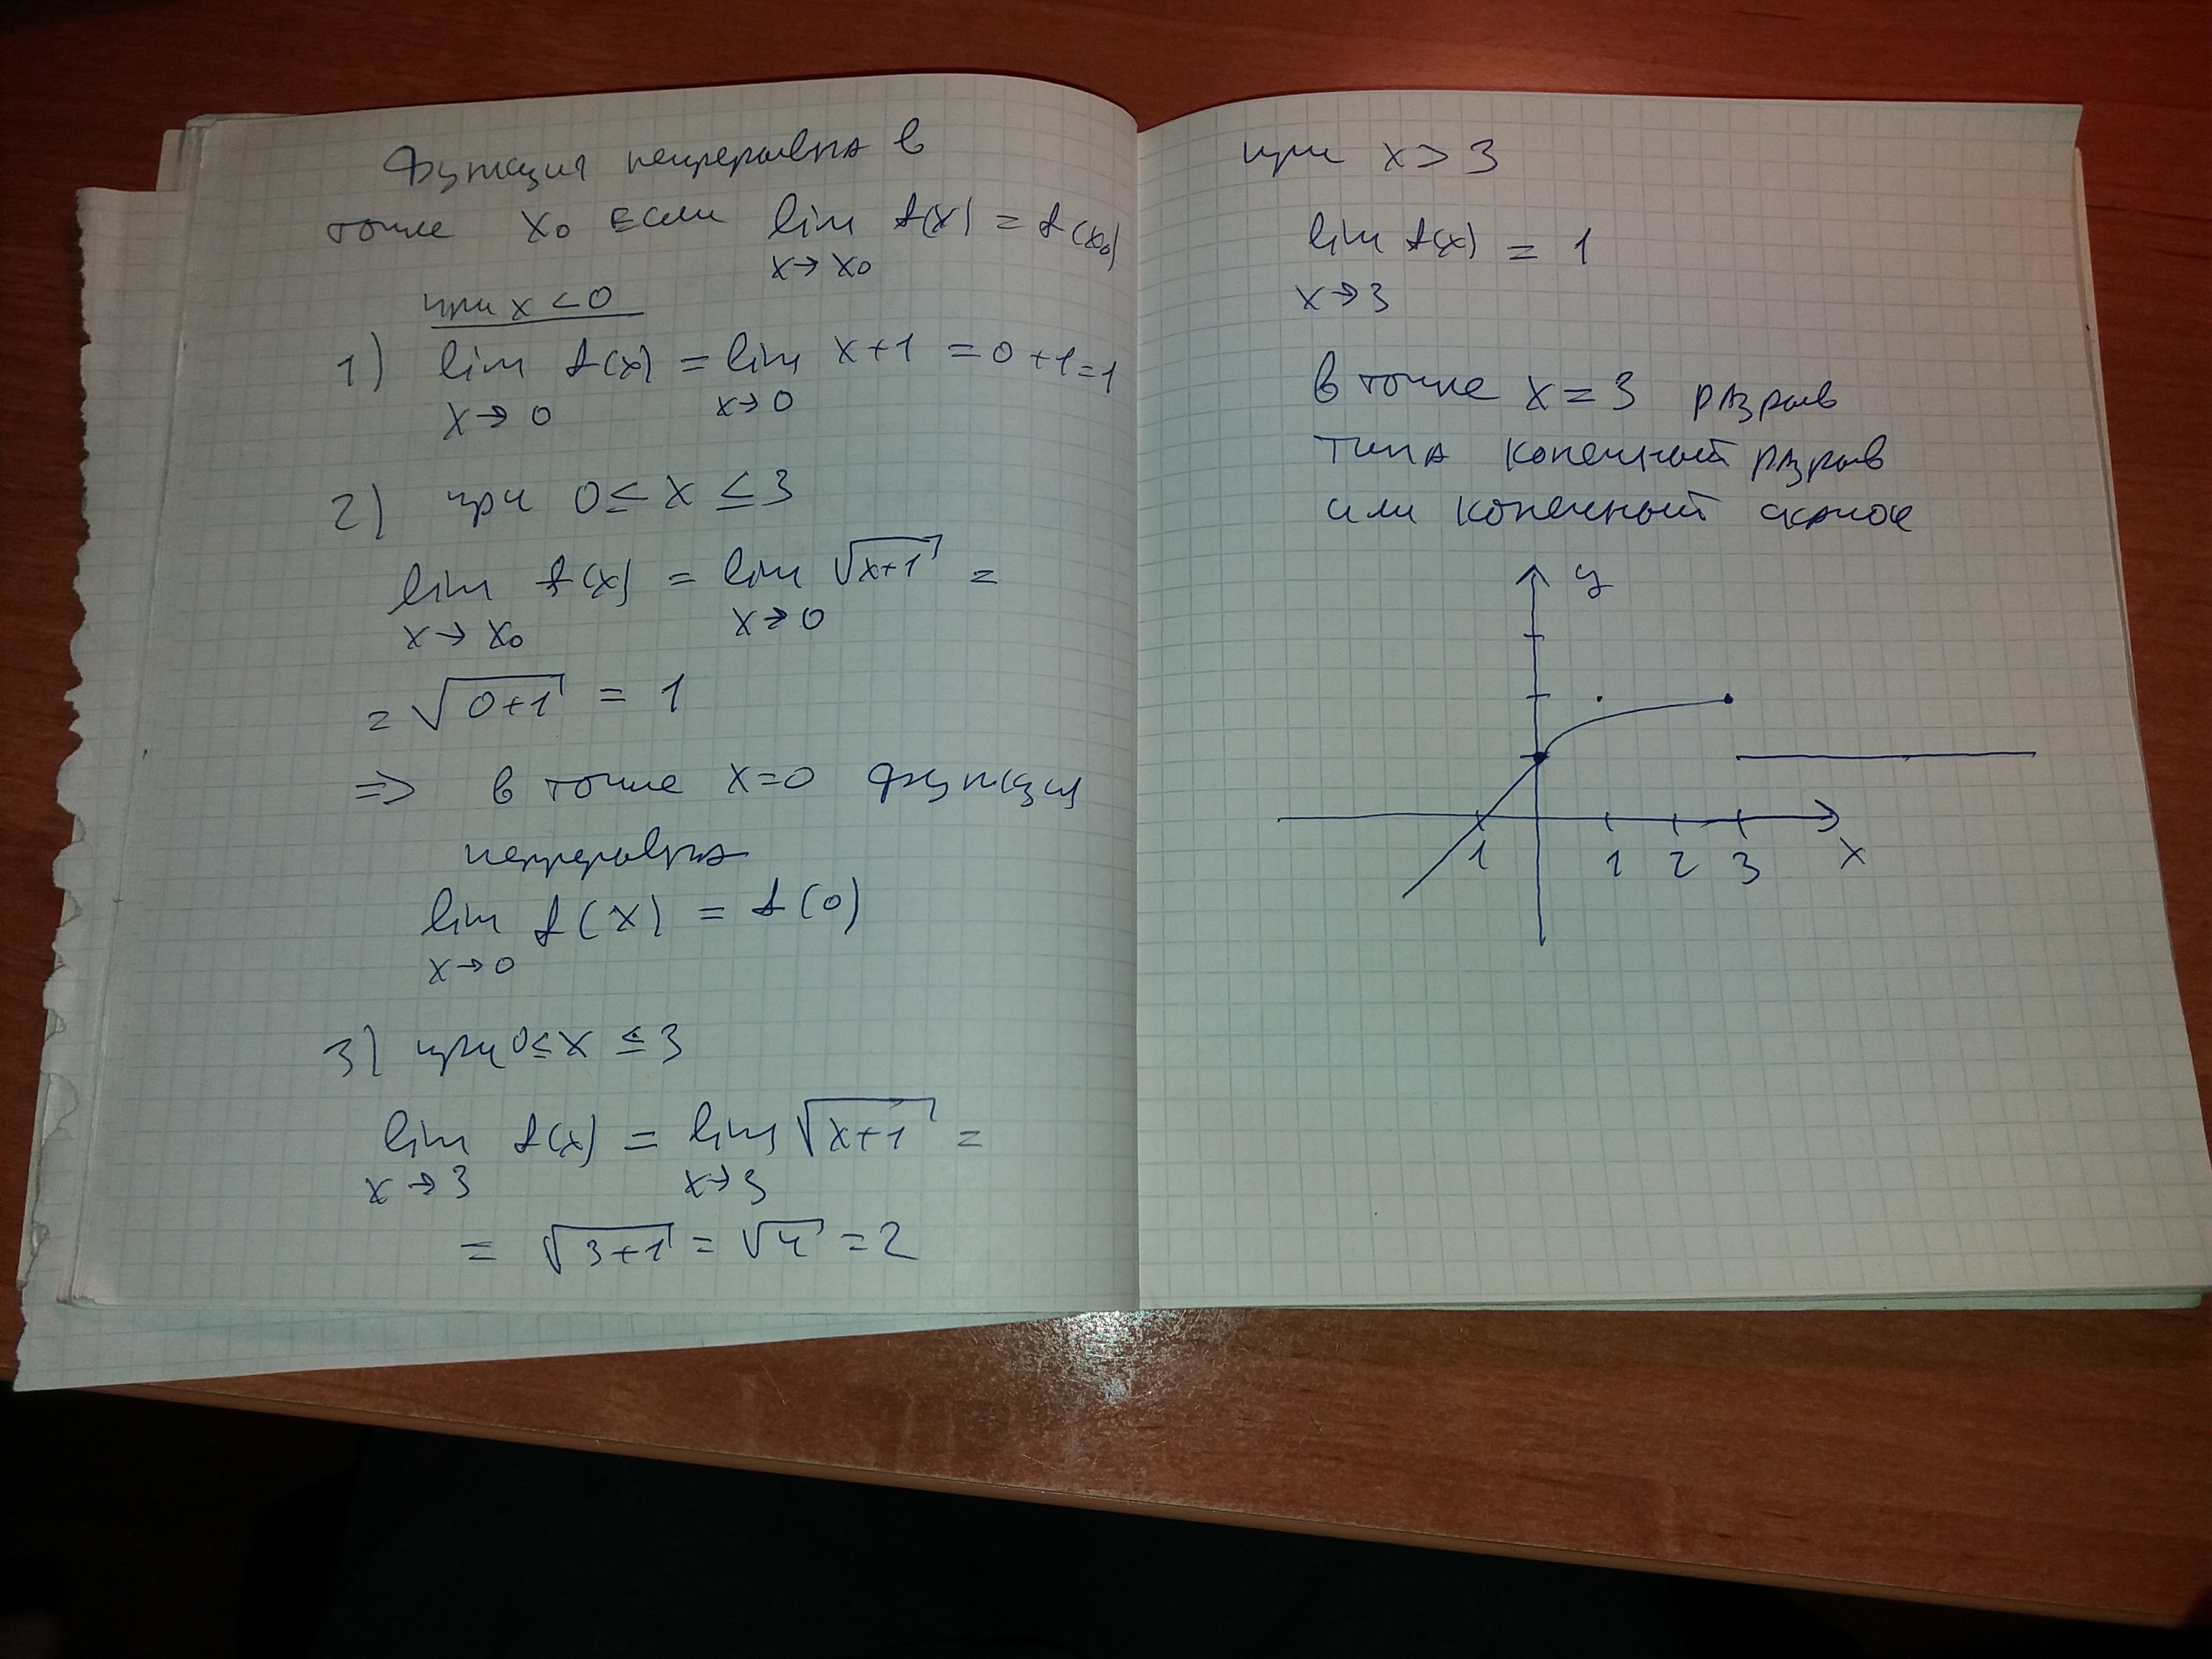 Функция непрерывна в
точке x₀ если lim f(x) = f(x₀)
x→x₀
при x < 0
1) lim f(x) = lim x+1 = 0+1=1
x→0 x→0
2) при 0 ≤ x ≤ 3
lim f(x) = lim √(x+1) =
x→x₀ x→0
= √(0+1) = 1
=> в точке x=0 функция
непрерывна
lim f(x) = f(0)
x→0
3) при 0≤x ≤ 3
lim f(x) = lim √(x+1) =
x→3 x→3
= √(3+1) = √4 = 2
при x > 3
lim f(x) = 1
x→3
в точке x = 3 разрыв
типа конечный разрыв
или конечный скачок
y
1 1 2 3 x